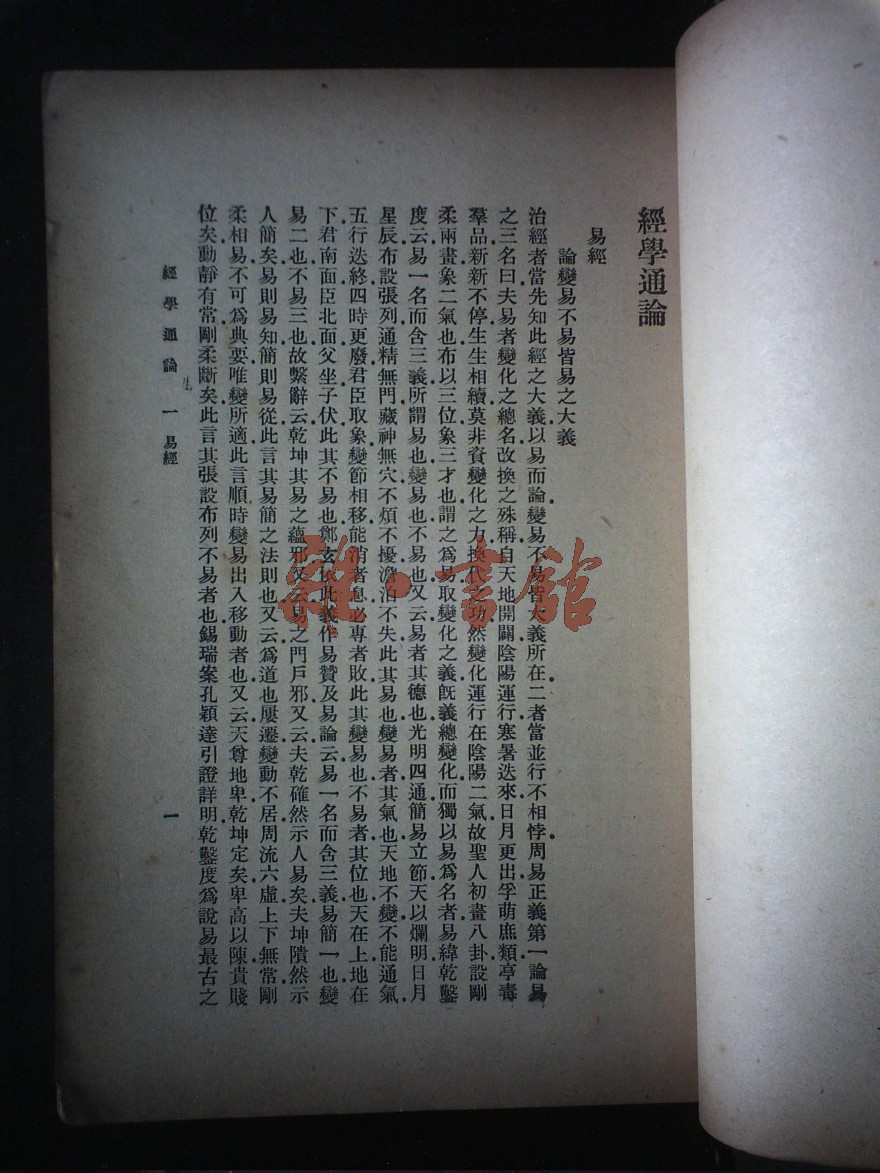 經學通論
易經
論變易不易皆易之大義
治經者當先知此經之大義以易而論變易不易皆大義所在二者當並行不相悖周易正義第一論易
之三名曰夫易者變化之總名改換之殊稱自天地開闢陰陽運行寒暑迭來日月更出孚萌庶類亭毒
羣品新新不停生生相續莫非資變化之力換代之功然變化運行在陰陽二氣故聖人初畫八卦設剛
柔兩畫象二氣也布以三位象三才也謂之爲易取變化之義旣義總變化而獨以易爲名者易緯乾鑿
度云易一名而含三義所謂易也變易也不易也又云易者其德也光明四通簡易立節天以爛明日月
星辰布設張列通精無門藏神無穴不煩不擾澹泊不失此其易也變易者其氣也天地不變不能通氣
五行迭終四時更廢君臣取象變節相移能消者息必專者敗此其變易也不易者其位也天在上地在
下君南面臣北面父坐子伏此其不易也鄭玄依此義作易贊及易論云易一名而含三義易簡一也變
易二也不易三也故繫辭云乾坤其易之蘊邪又云易之門戶邪又云夫乾確然示人易矣夫坤隤然示
人簡矣易則易知簡則易從此言其易簡之法則也又云爲道也屢遷變動不居周流六虛上下無常剛
柔相易不可爲典要唯變所適此言順時變易出入移動者也又云天尊地卑乾坤定矣卑高以陳貴賤
位矣動靜有常剛柔斷矣此言其張設布列不易者也錫瑞案孔穎達引證詳明乾鑿度爲說易最古之
經學通論 一 易經 一
雅·書館